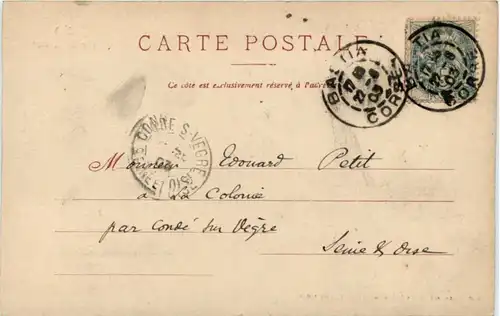 CARTE POSTALE
Ce côté est exclusivement réservé à l'adresse
BASTIA
CORSE
BASTIA
CORSE
CONDÉ S. VEGRE
Monsieur Edouard Petit
à la Colonie
par Condé sur Vègre
Seine & Oise